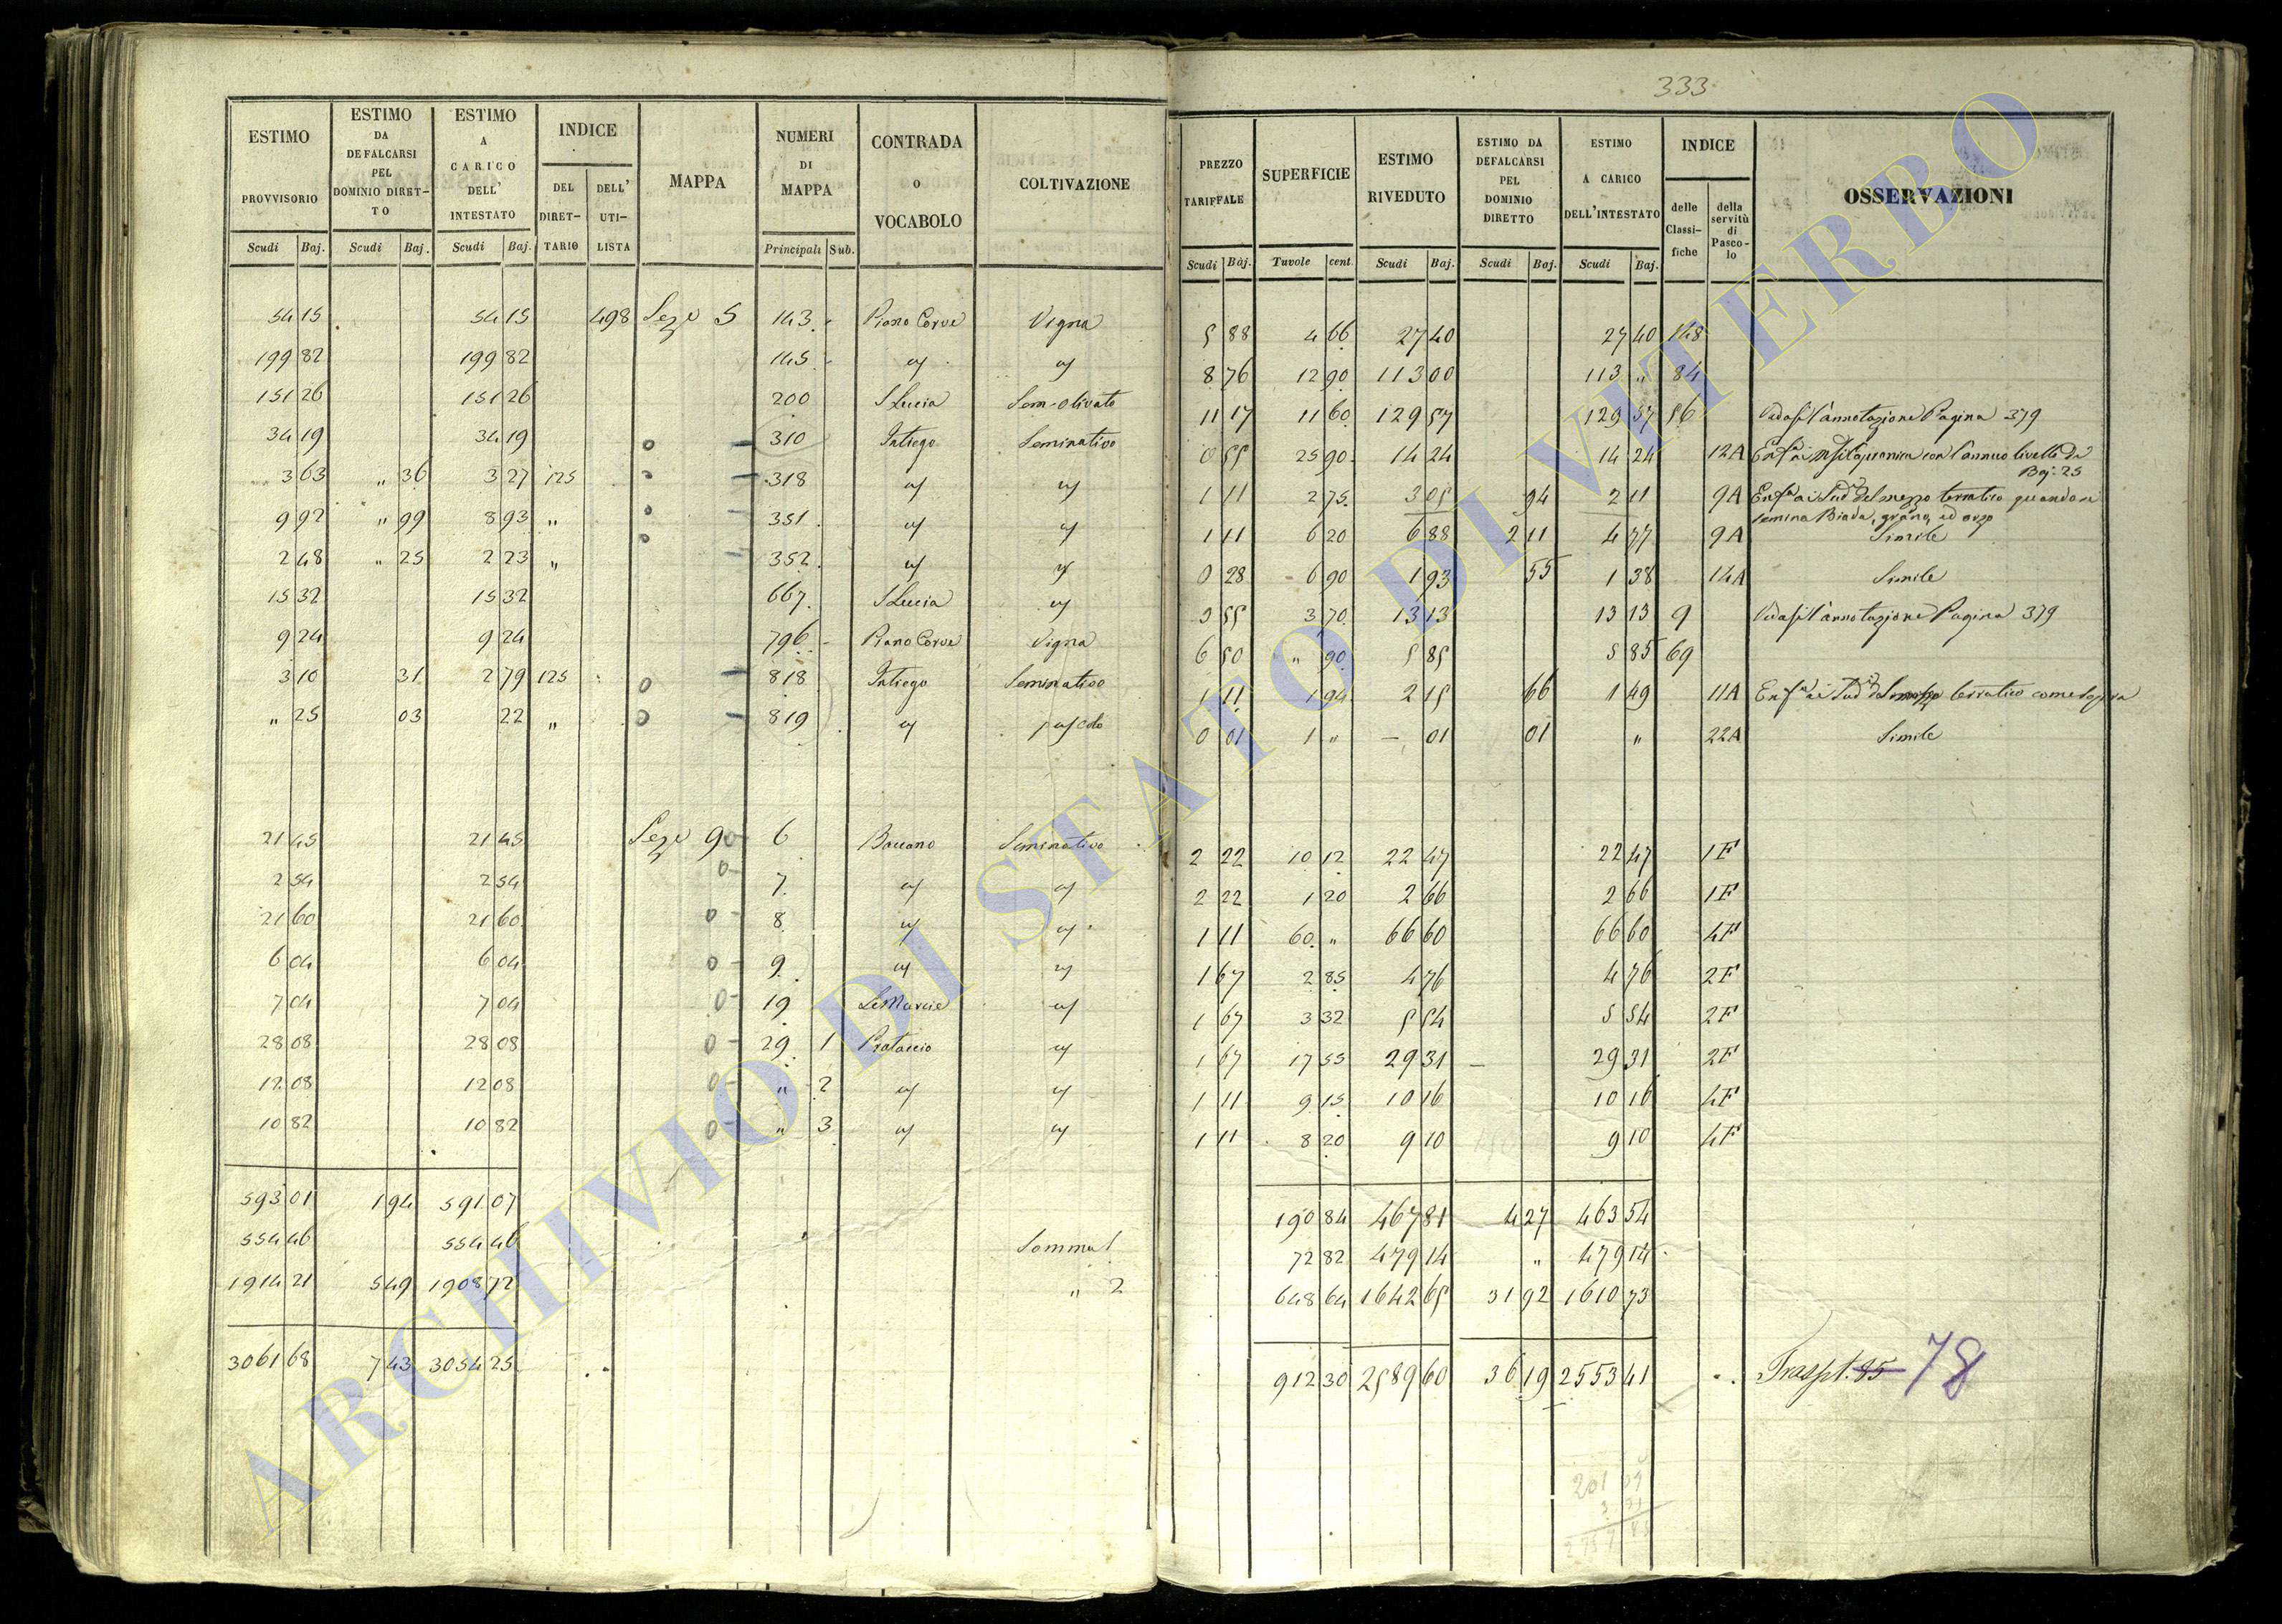 333
ESTIMO PROVVISORIO Scudi Baj. ESTIMO DA DEFALCARSI PEL DOMINIO DIRETTO Scudi Baj. ESTIMO A CARICO DELL' INTESTATO Scudi Baj. INDICE DEL DIRETTARIO DELL' UTILISTA MAPPA NUMERI DI MAPPA Principali Sub. CONTRADA O VOCABOLO COLTIVAZIONE
54 15 54 15 498 Seze 5 143 Piano Corve Vigna
199 82 199 82 145 " "
151 26 151 26 200 S Lucia Sem-olivato
34 19 34 19 310 Intiego Seminativo
3 63 " 36 3 27 125 318 " "
9 92 " 99 8 93 " 351 " "
2 48 " 25 2 23 " 352 " "
15 32 15 32 667 S Lucia "
9 24 9 24 796 Piano Corve Vigna
3 10 31 2 79 125 818 Intiego Seminativo
" 25 03 22 " 819 " pascolo
21 45 21 45 Seze 9 6 Baccano Seminativo
2 54 2 54 7 " "
21 60 21 60 8 " "
6 04 6 04 9 " "
7 04 7 04 19 "
28 08 28 08 29 1 Prataccio "
12 08 12 08 " 2 " "
10 82 10 82 " 3 " "
593 01 1 94 591 07
554 46 554 46 Somma 1
1914 21 5 49 1908 72 " 2
3061 68 7 43 3054 25
PREZZO TARIFFALE Scudi Baj. SUPERFICIE Tavole cent. ESTIMO RIVEDUTO Scudi Baj. ESTIMO DA DEFALCARSI PEL DOMINIO DIRETTO Scudi Baj. ESTIMO A CARICO DELL'INTESTATO Scudi Baj. INDICE delle Classifiche della servitù di Pascolo OSSERVAZIONI
5 88 4 66 27 40 27 40 148
8 76 12 90 113 00 113 " 84
11 17 11 60 129 57 129 57 56 Vedasi l'annotazione Pagina 379
0 55 25 90 14 24 14 24 12A con l'annuo livello di
Baj: 25
1 11 2 75 3 05 94 2 11 9A del mezzo terratico quando si
semina Biada, grano, ed orzo
1 11 6 20 6 88 2 11 4 77 9A Simile
0 28 6 90 1 93 55 1 38 14A Simile
3 55 3 70 13 13 13 13 9 Vedasi l'annotazione Pagina 379
6 50 " 90 5 85 5 85 69
1 11 1 94 2 15 66 1 49 11A terratico come sopra
0 01 1 " - 01 01 " 22A Simile
2 22 10 12 22 47 22 47 1F
2 22 1 20 2 66 2 66 1F
1 11 60 " 66 60 66 60 4F
1 67 2 85 4 76 4 76 2F
1 67 3 32 5 54 5 54 2F
1 67 17 55 29 31 29 31 2F
1 11 9 15 10 16 10 16 4F
1 11 8 20 9 10 9 10 4F
190 84 467 81 4 27 463 54
72 82 479 14 " 479 14
648 64 1642 65 31 92 1610 73
912 30 2589 60 36 19 2553 41 Traspt. 85 78
ARCHIVIO DI STATO DI VITERBO